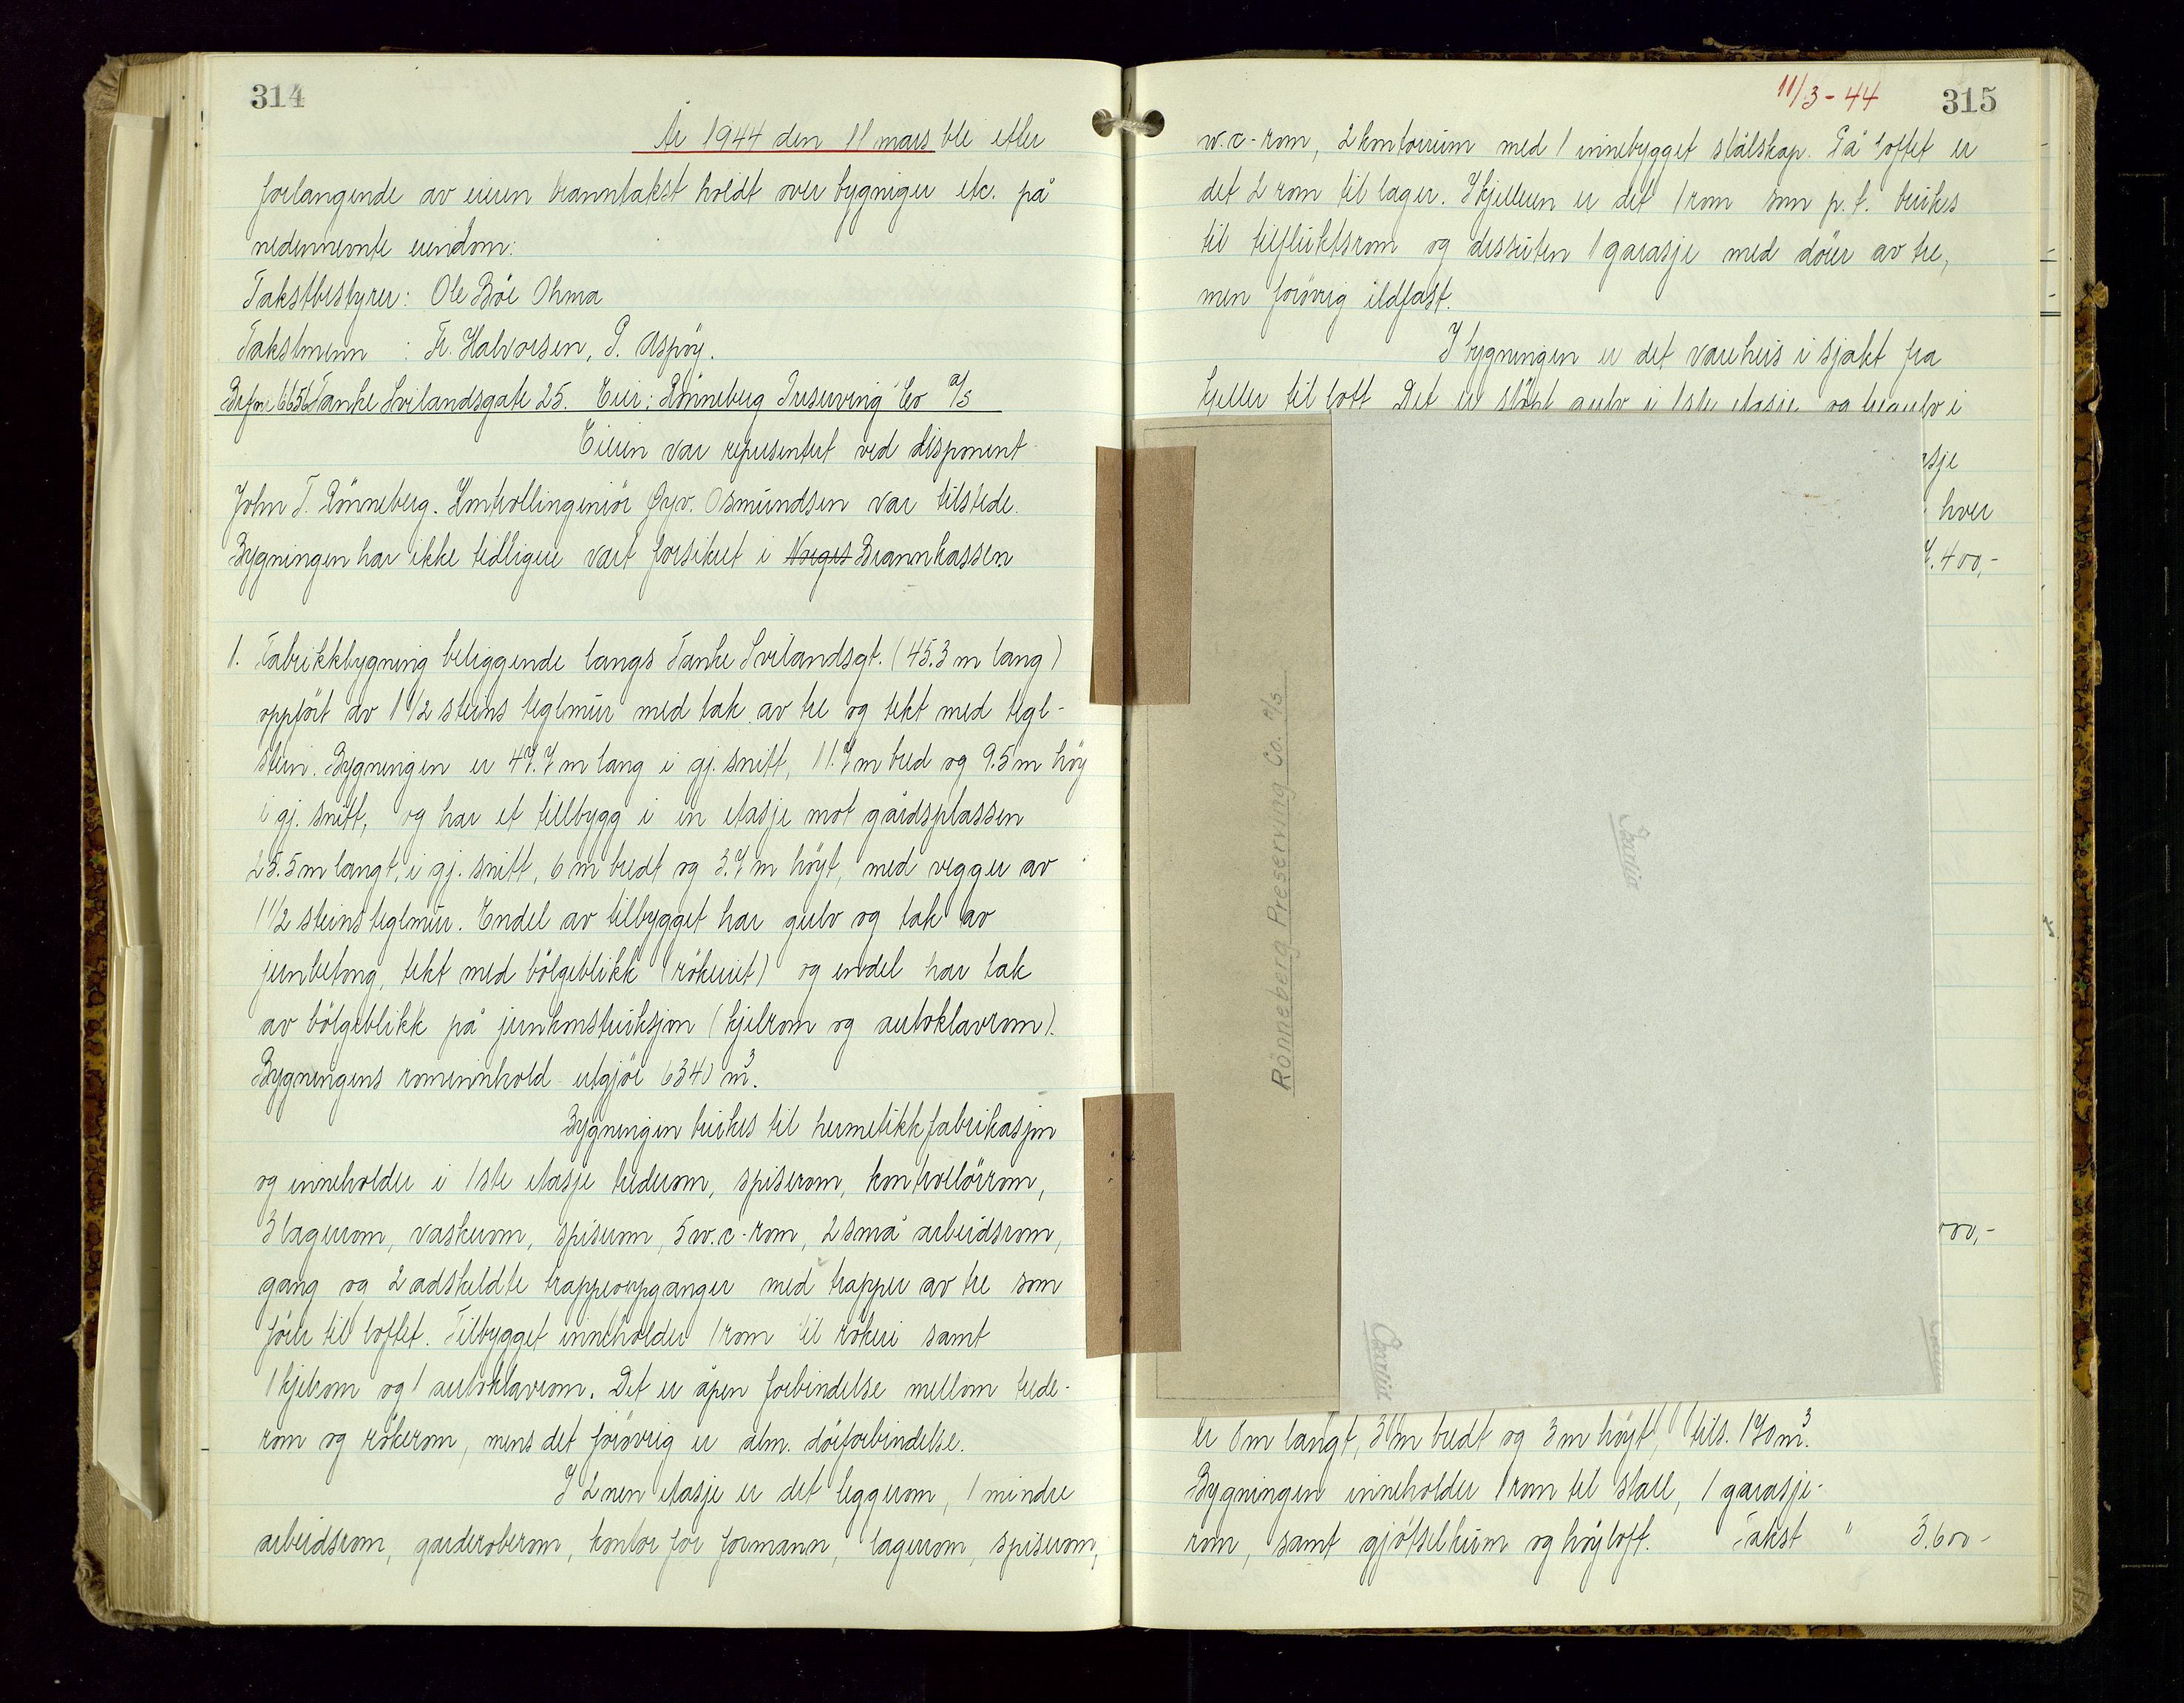 314
År 1944 den 11 mars ble etter
forlangende av eieren branntakst holdt over bygniger etc. på
nedennevnte eiendom:
Takstbestyrer: Ole Böe Ohma
Takstmenn : Fr. Halvorsen, P. Aspöy.
Br.fnr 6656 Tanke Svilandsgate 25. Eier: Rönneberg Preserving Co a/s
Eieren var representert ved disponent
John T. Rönneberg. Kontrollingeniör Öyv. Osmundsen var tilstede.
Bygningen har ikke tidligere vært forsikret i Norges Brannkassen
1. Fabrikkbygning beliggende langs Tanke Svilandsgt. (45.3 m lang)
oppfört av 1 1/2 steins teglmur med tak av tre og tekt med tegl-
stein. Bygningen er 47.7 m lang i gj. snitt, 11.7 m bred og 9.5 m höy
i gj. snitt, og har et tillbygg i en etasje mot gårdsplassen
25.5 m langt, i gj. snitt, 6 m bredt og 3.7 m höyt, med vegger av
1 1/2 steins teglmur. Endel av tilbygget har gulv og tak av
jernbetong, tekt med bölgeblikk (rökeriet) og endel har tak
av bölgeblikk på jernkonstruksjon (kjelrom og autoklavrom).
Bygningens rominnhold utgjör 6340 m³.
Bygningen brukes til hermetikkfabrikasjon
og inneholder i 1ste etasje trederom, spiserom, kontrollörrom,
3 lagerrom, vaskerom, spiserom, 5 w.c-rom, 2 små arbeidsrom,
gang og 2 adskildte trappeoppganger med trapper av tre som
förer til loftet. Tilbygget inneholder 1 rom til rökeri samt
1 kjelrom og 1 autoklavrom. Det er åpen forbindelse mellom trede-
rom og rökerom, mens det forövrig er alm. dörforbindelse.
I 2nen etasje er det leggerom, 1 mindre
arbeidsrom, garderoberom, kontor for formann, lagerrom, spiserom,
11/3 - 44
315
w.c-rom, 2 kontorrum med 1 innebygget stålskap. På loftet er
det 2 rom til lager. I kjelleren er det 1 rom som p.t. brukes
til tilfluktsrom og dessuten 1 garasje med dörer av tre,
men forövrig ildfast.
I bygningen er det vareheis i sjakt fra
kjeller til loft. Det er stöpt gulv i 1ste etasje og tregulv i
asje
hver
7.400,-
Rönneberg Preserving Co. A/S
000,-
er 6 m langt, 3 m bredt og 3 m höyt, tils. 170 m³.
Bygningen inneholder 1 rom til stall, 1 garasje-
rom, samt gjötselkum og höyloft. Takst " 3.600-